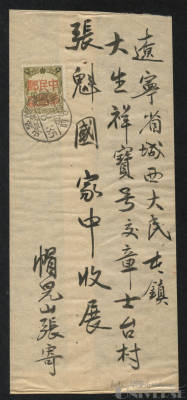 遼寧省城西大民屯鎮
大生祥寶號交章士台村
張魁國家中收展
帽兒山張寄
中華民國
UNIVERSE